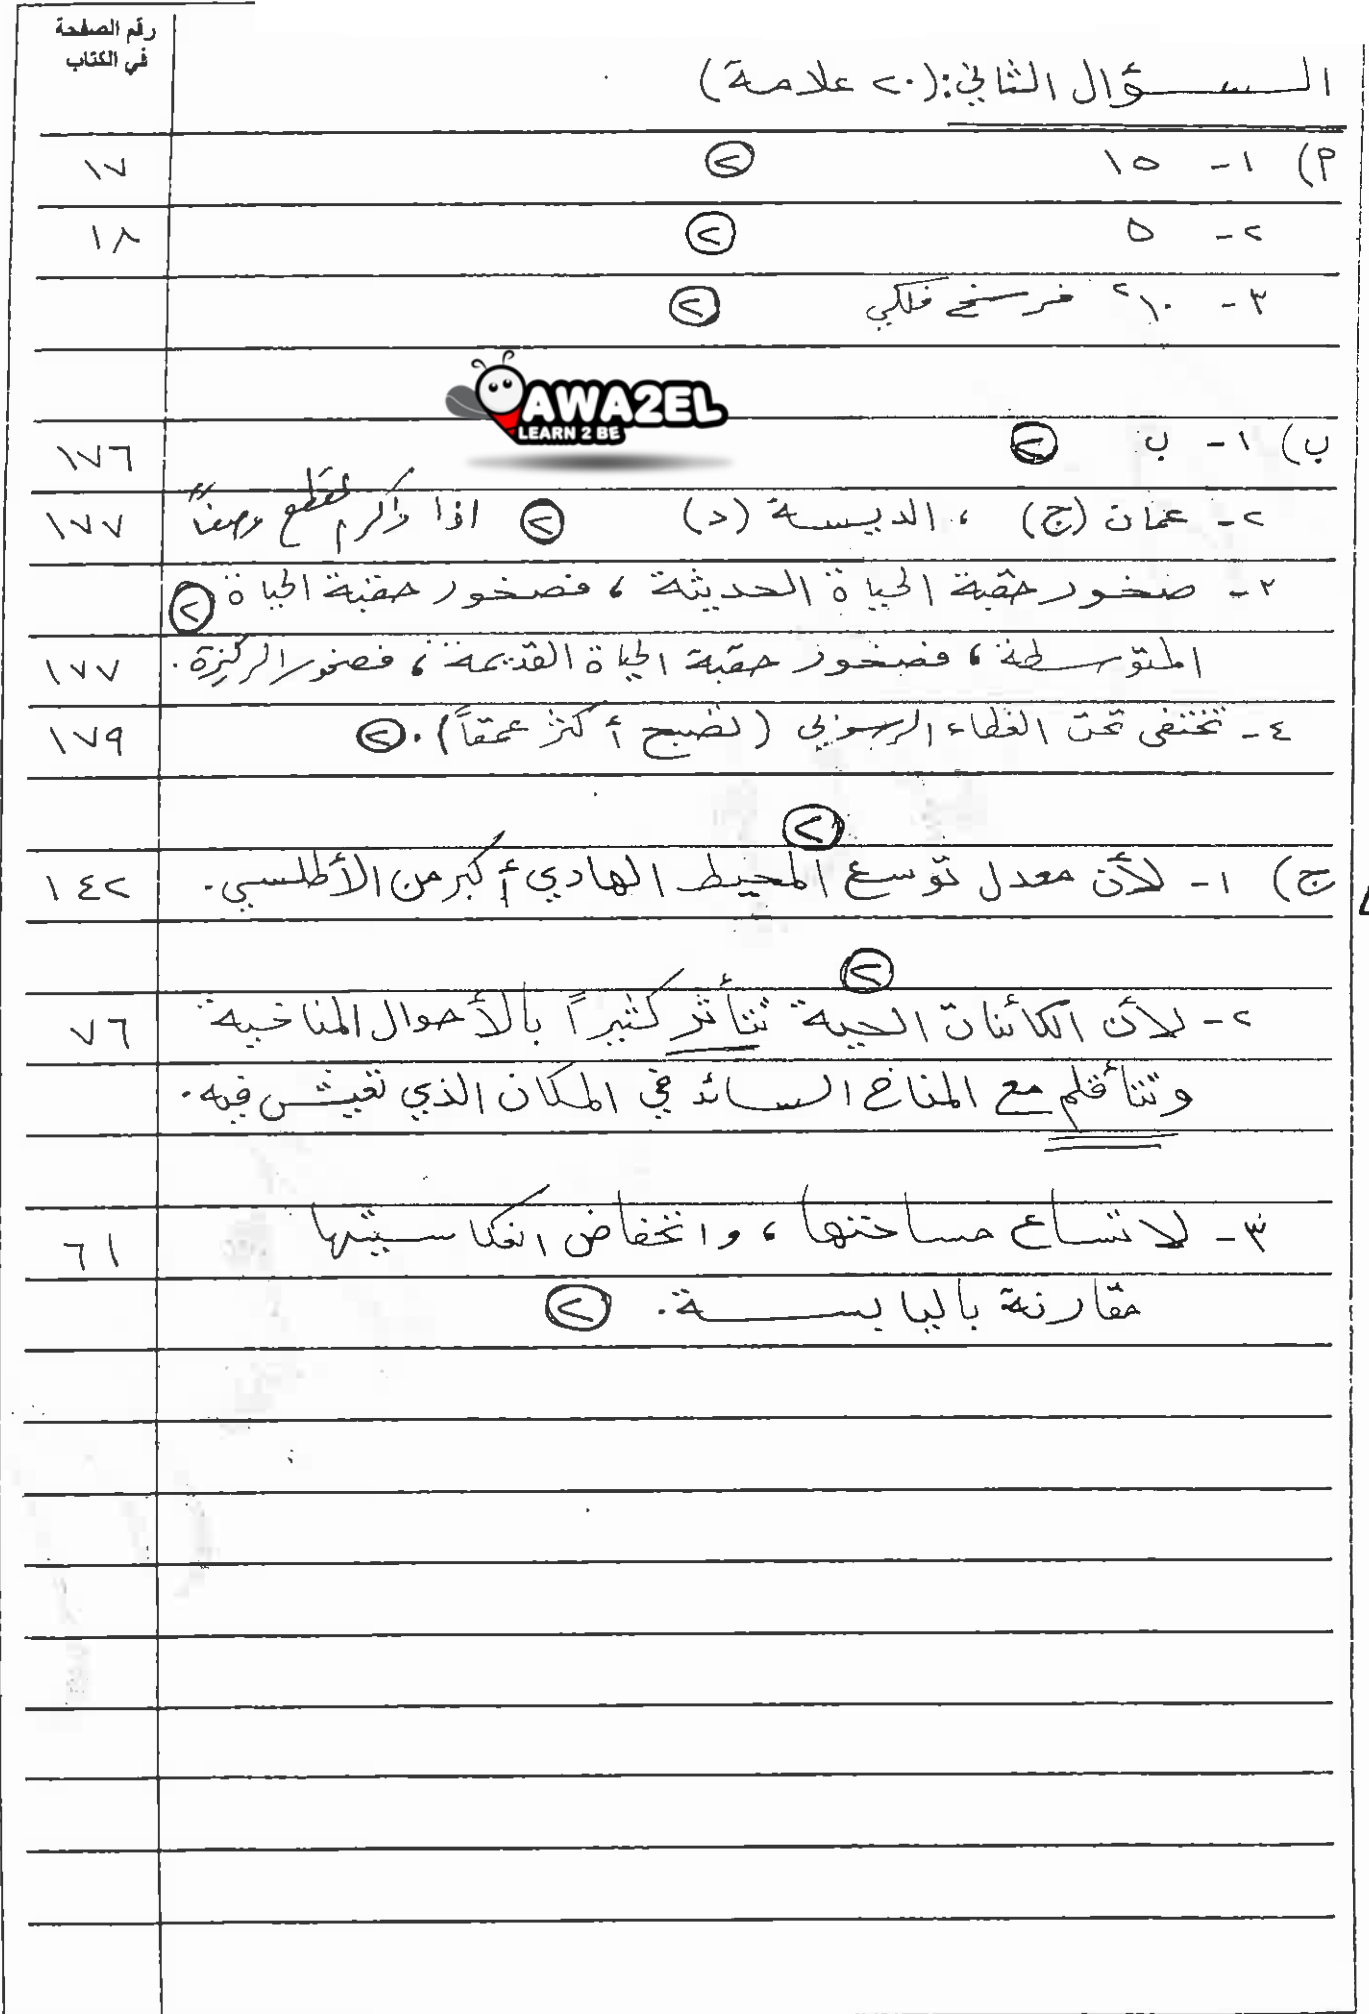 رقم الصفحة
في الكتاب
السؤال الثاني: (٢٠ علامة)
أ) ١- ١٥ ② ١٧
٢- ٥ ② ١٨
٣- ١٠٢ فرسخ فلكي ②
AWA2EL
LEARN 2 BE
ب) ١- ب ② ١٧٦
٢- عمان (ج) ، الديسة (د) ② اذا ذكر م فقط ع ١٧٧
٣- صخور حقبة الحياة الحديثة ، فصخور حقبة الحياة ②
المتوسطة ، فصخور حقبة الحياة القديمة ، فصخور الركيزة. ١٧٧
٤- تختفي تحت الغطاء الرسوبي (تصبح أكثر عمقاً). ② ١٧٩
②
ج) ١- لأن معدل توسع المحيط الهادي أكبر من الأطلسي. ١٤٢
②
٢- لأن الكائنات الحية تتأثر كثيراً بالأحوال المناخية ٧٦
وتتأقلم مع المناخ السائد في المكان الذي تعيش فيه.
٣- لاتساع مساحتها ، وانخفاض انعكاسيتها ٦١
مقارنة باليابسة. ②